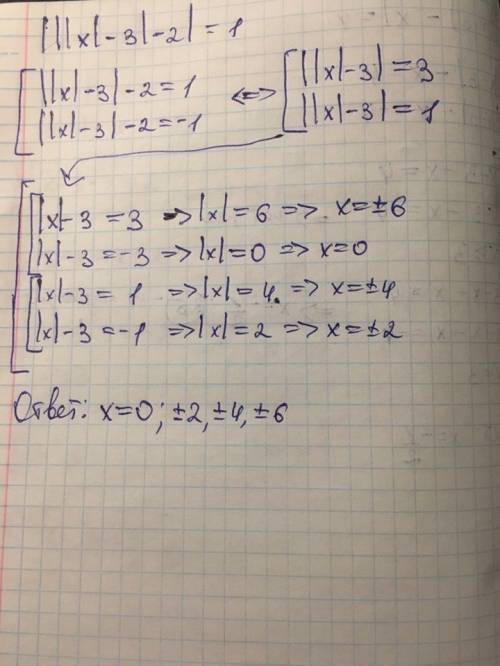 |||x|-3|-2| = 1
||x|-3|-2=1 <=> ||x|-3|=3
||x|-3|-2=-1 ||x|-3|=1
|x|-3=3 => |x|=6 => x=±6
|x|-3=-3 => |x|=0 => x=0
|x|-3=1 => |x|=4 => x=±4
|x|-3=-1 => |x|=2 => x=±2
Ответ: x=0; ±2, ±4, ±6